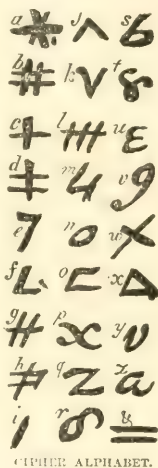 a j s
b k t
c l u
d m v
e n w
f o x
g p y
h q z
i r &
CIPHER ALPHABET.